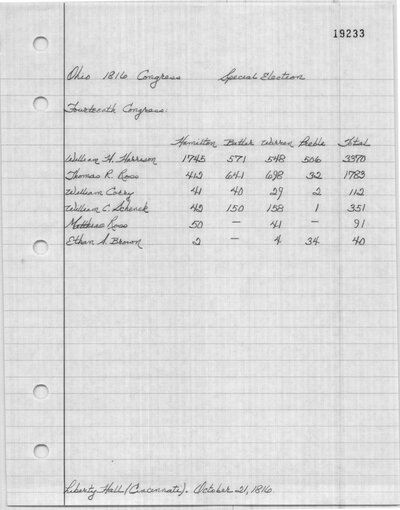 19233
Ohio 1816 Congress Special Election
Fourteenth Congress:
Hamilton Butler Warren Preble Total
William H. Harrison 1745 571 548 506 3370
Thomas R. Ross 412 641 698 32 1783
William Corry 41 40 29 2 112
William C. Schenck 42 150 158 1 351
Matthias Ross 50 — 41 — 91
Ethan A. Brown 2 — 4 34 40
Liberty Hall (Cincinnati). October 21, 1816.